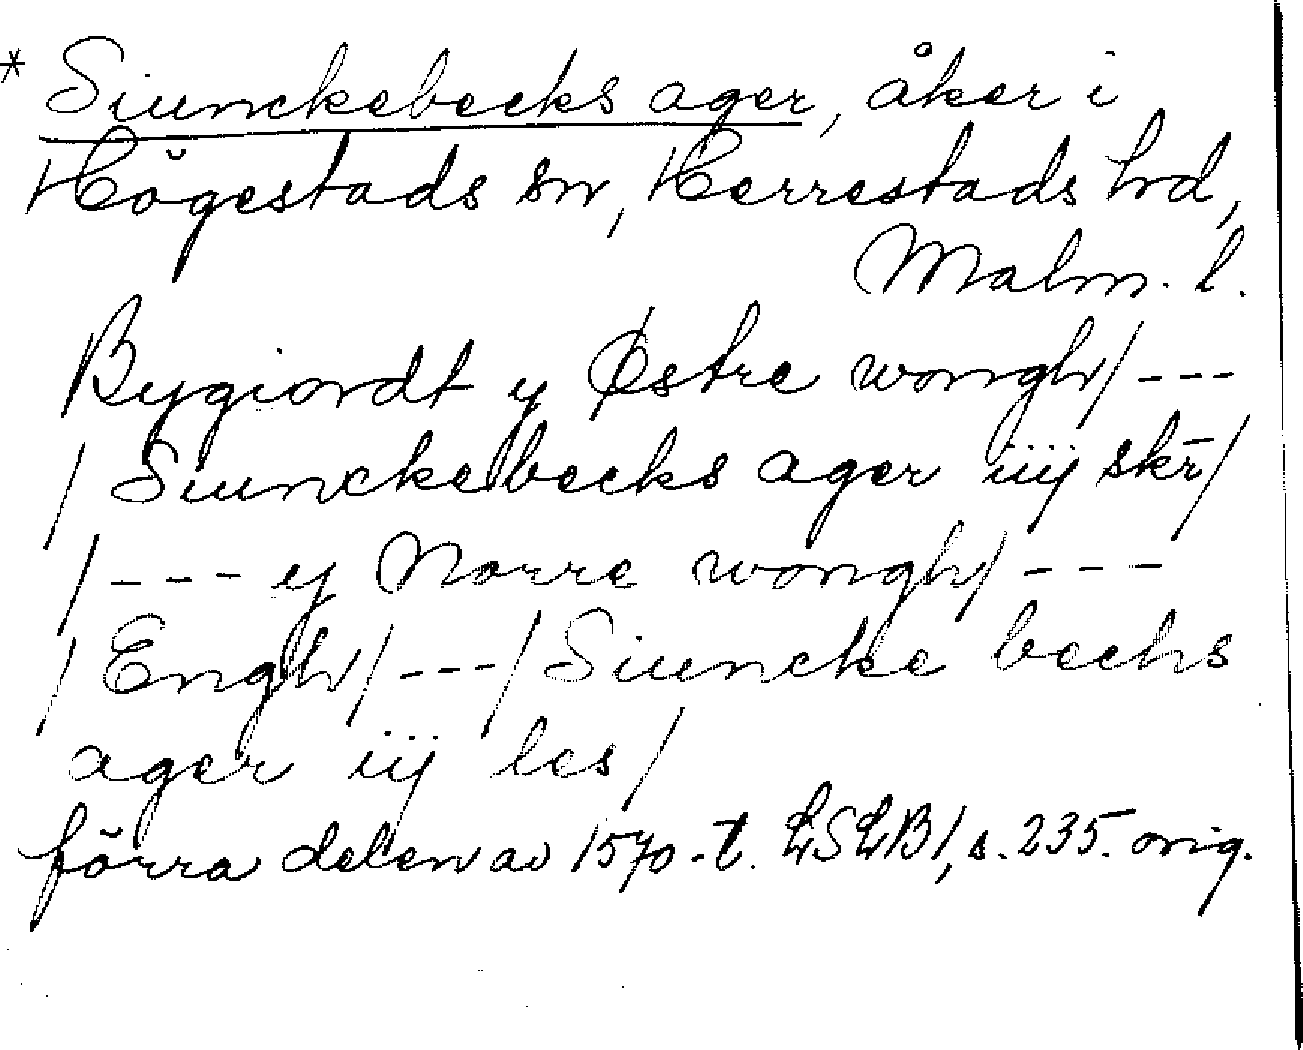 * Siunckebecks ager, åker i
Högestads sn, Herrestads hd,
Malm. l.
Bygiordt y Østre wongh/ ---
/ Siunckebecks ager iiij skr̄/
/ --- y Norre wongh/ ---
/ Engh/ --- / Siuncke bechs
ager iij les/
förra delen av 1570-t. LSLB 1, s. 235. orig.